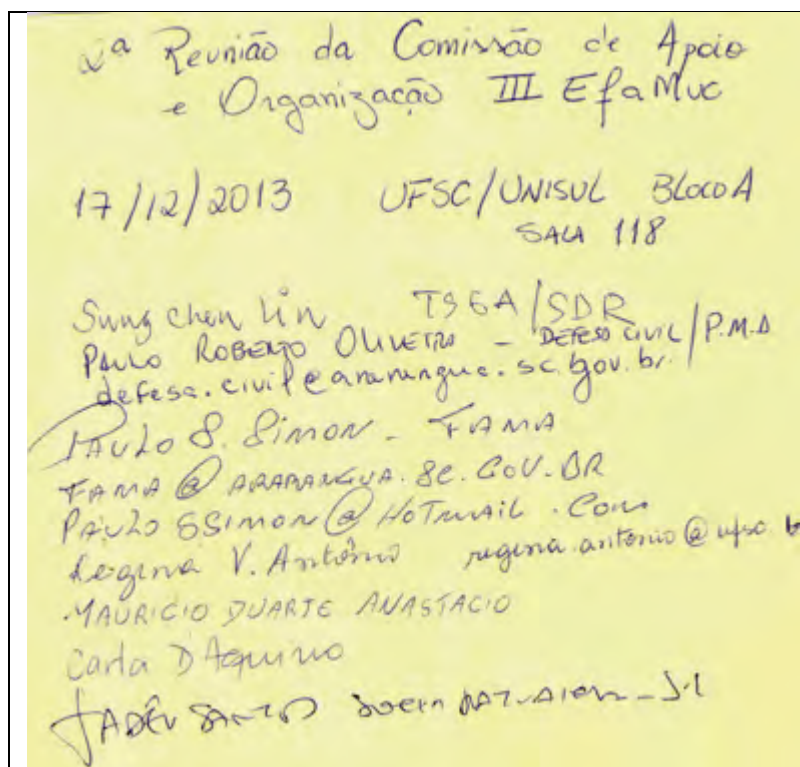 2ª Reunião da Comissão de Apoio
e Organização III EfaMuc
17/12/2013 UFSC/UNISUL BLOCO A
SALA 118
Sung chen Lin TSGA/SDR
PAULO ROBERTO OLIVEIRA - DEFESA CIVIL/P.M.A
defesa.civil@ararangua.sc.gov.br
PAULO S. SIMON - FAMA
FAMA@ARARANGUA.SC.GOV.BR
PAULOSSIMON@HOTMAIL.COM
Regina V. Antônio regina.antonio@ufsc.b
MAURICIO DUARTE ANASTACIO
Carla D'Aquino
TADEU SANTOS